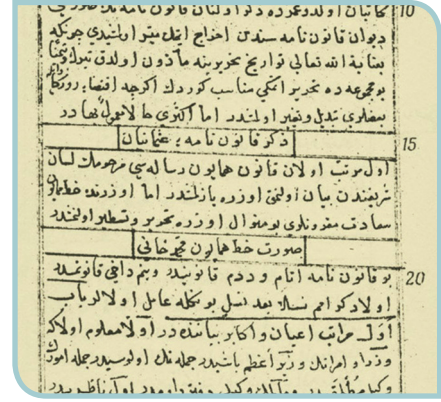 ذكر اولنان قانون نامه 10
ديوان قانون نامه سندن اخراج ايتمك ميسر اولمشدى چونكه
بعناية الله تعالى تواريخ تحريرينه مأذون اولدق تبركا وتيمنا
بو مجموعه ده تحرير اتمكى مناسب كوردك اكرچه اقتضاء روزكار
بعضلرى تبديل وتغيير اولنمشدر اما اكثرى حالا معمول بهادر
ذكر قانون نامهٔ عثمانيان 15
اول مرتب اولان قانون همايون رساله سى مرحومك لسان
شريفندن بيان اولنمق اوزره يازلمشدر اما اوزرنده خط همايون
سعادت مقرونلرى بو منوال اوزره تحرير وتسطير اولنمشدر
صورت خط همايون محمد خانى
بو قانون نامه اتام وددم قانونيدر وبنم داخى قانونمدر 20
اولاد كرامم نسلا بعد نسل بونكله عامل اولالر باب
اول مراتب اعيان واكابر بياننده در اولا معلوم اولاكه
وزرا وامرانك وزير اعظم باشيدر جمله نك اولوسيدر جمله امورك
وكيل مطلقيدر